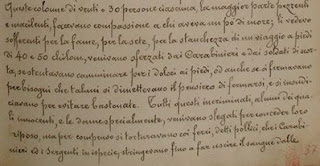 Queste colonne di venti e 30 persone ciascuna, la maggior parte pezzenti
e macilenti, facevano compassione a chi aveva un po' di more; li vedevo
sofferenti per la fame, per la sete, per la stanchezza di un viaggio
di 40 e 50 chilom, venivano sferzati dai Carabinieri e dai soldati di scor-
ta, se stentavano camminare per i dolori ai piedi, od anche se si fermavano
per bisogni che taluni si dimettevano il pensiero di fermarsi, e si insudi-
ciavano per evitare bastonate. Tutti questi incriminati, alcuni dei qua-
li innocenti, e le donne specialmente, venivano slegati per concedere loro
riposo, ma per compenso si torturavano coi ferri, detti pollici, che i Carabi-
nieri ed i Sergenti in ispecie, stringevano fino a far uscire il sangue dalle